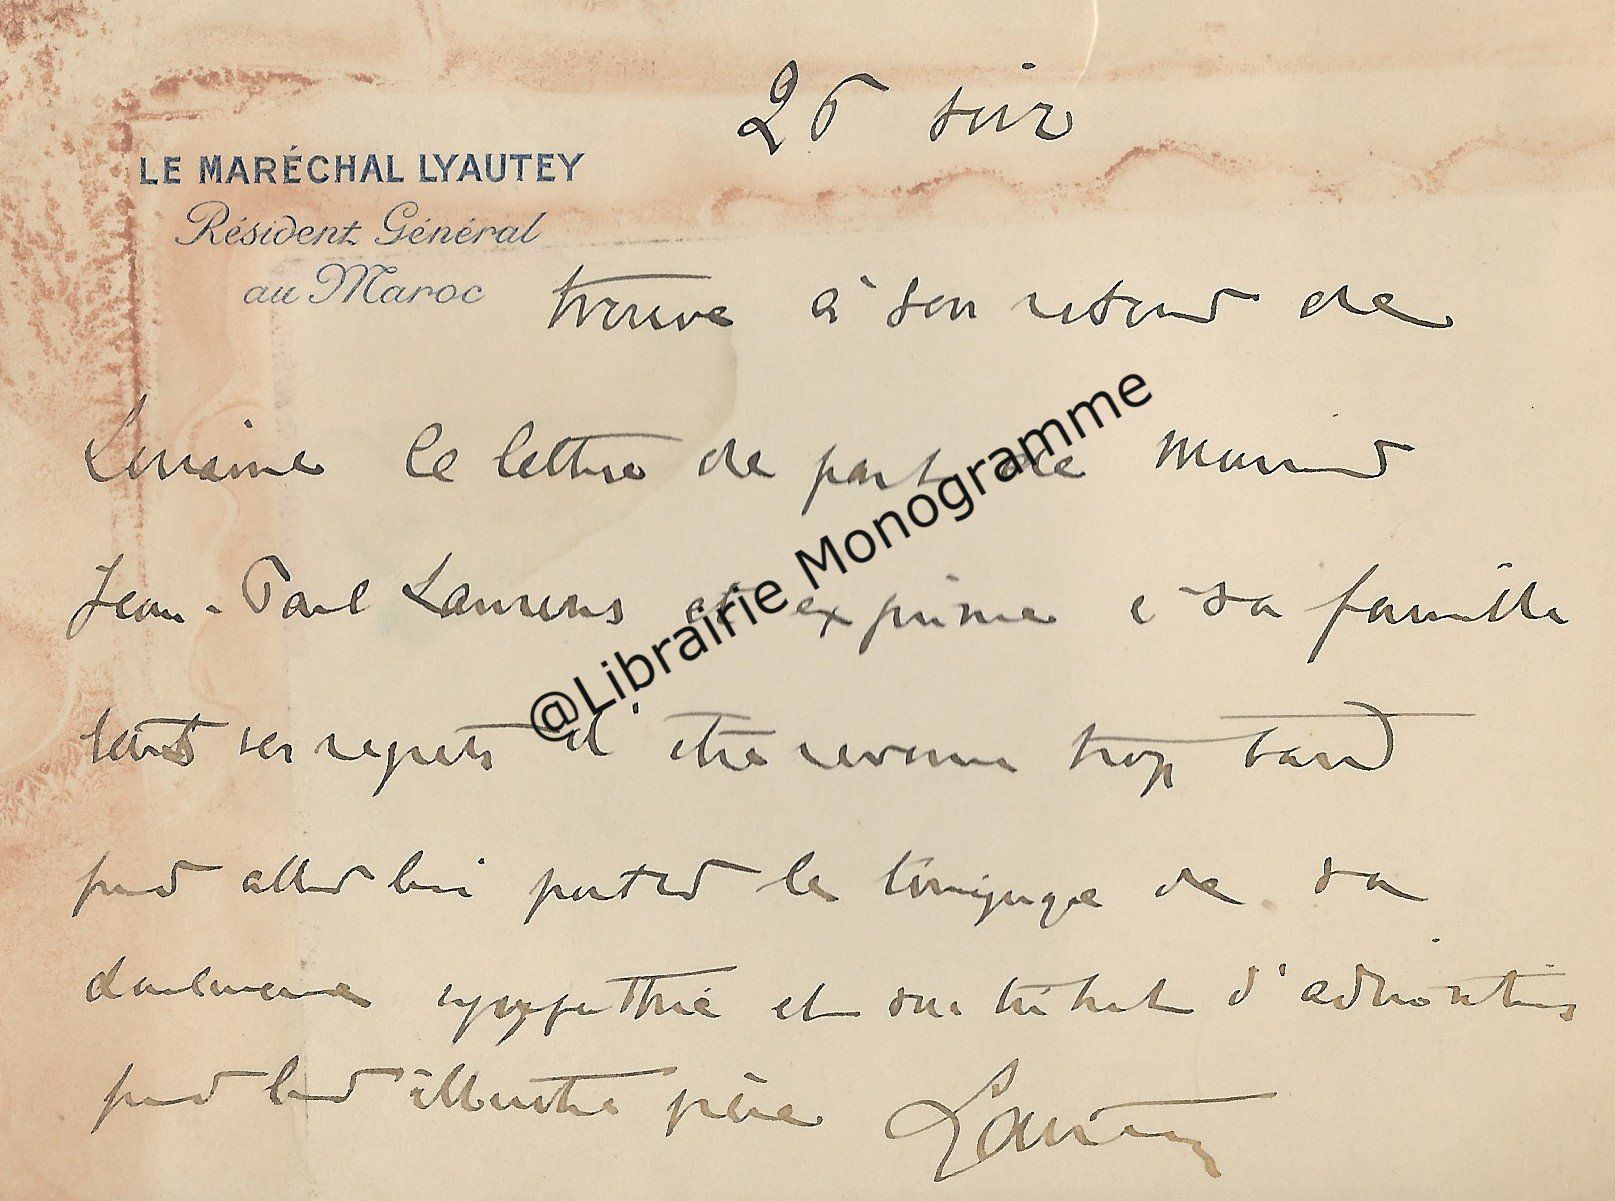 26 soir
LE MARÉCHAL LYAUTEY
Résident Général
au Maroc
trouve à son retour de
Lorraine la lettre de part de Monsieur
Jean-Paul Laurens et exprime à sa famille
tous ses regrets d'être revenu trop tard
pour aller lui porter le témoignage de sa
douloureuse sympathie et son tribut d'admiration
pour leur illustre père Lyautey
@Librairie Monogramme